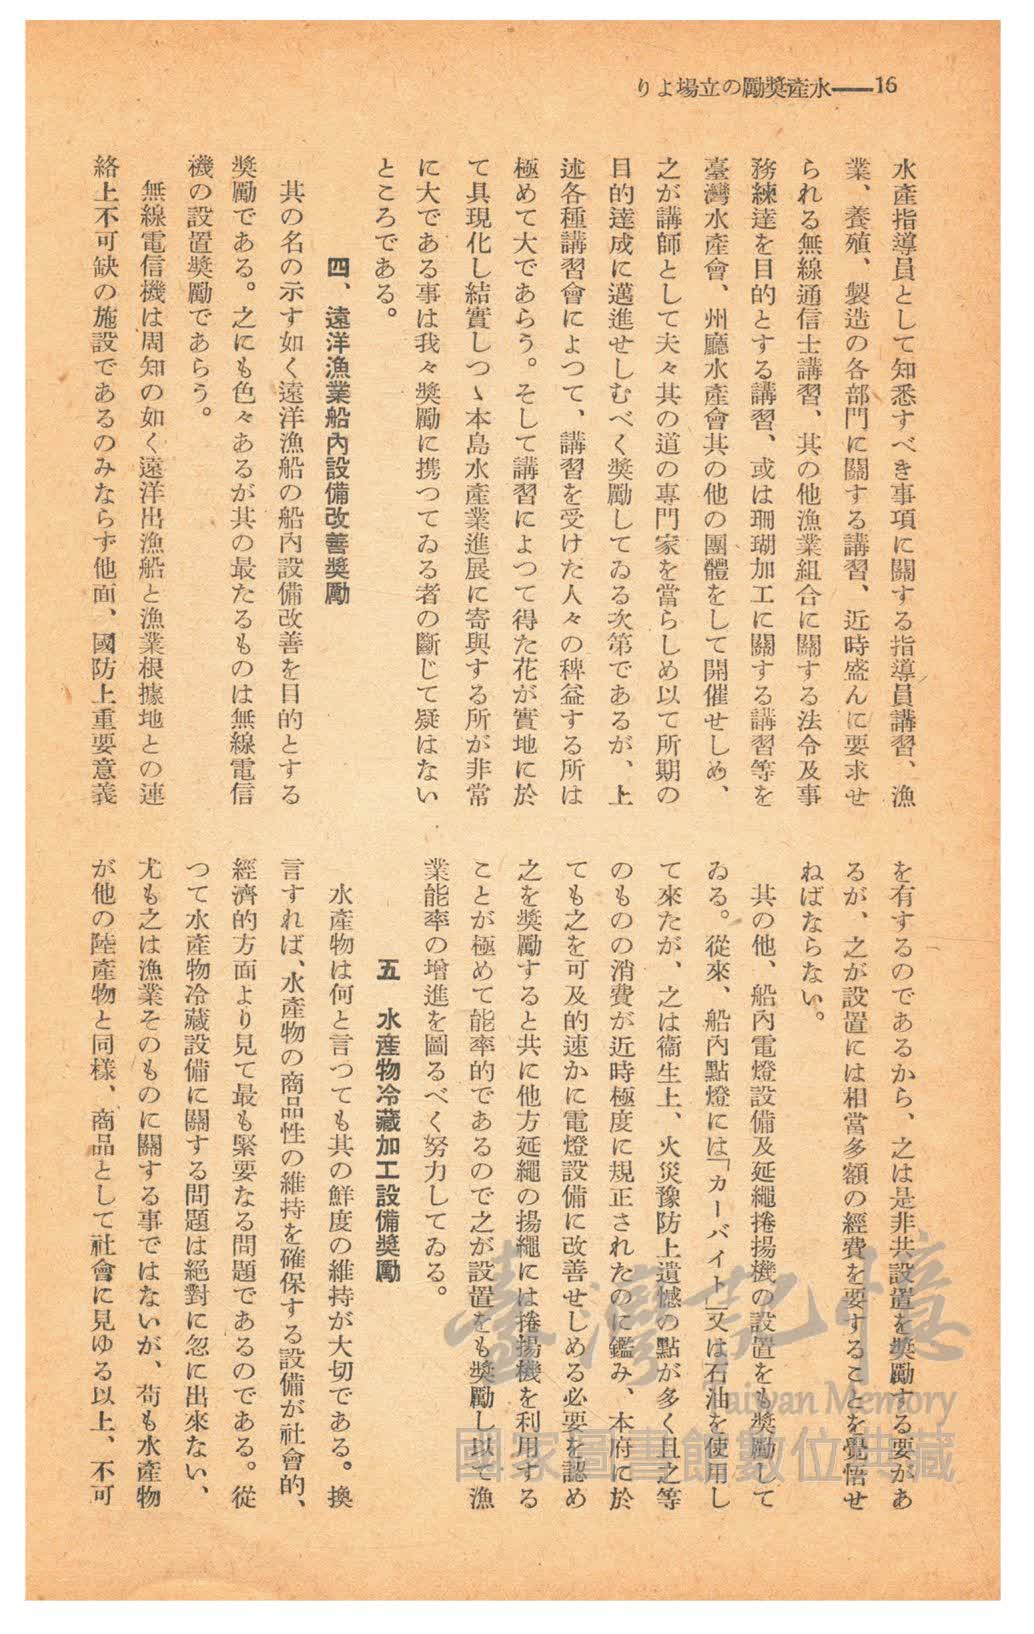 16――水產獎勵の立場より
水產指導員として知悉すべき事項に關する指導員講習、漁
業、養殖、製造の各部門に關する講習、近時盛んに要求せ
られる無線通信士講習、其の他漁業組合に關する法令及事
務練達を目的とする講習、或は珊瑚加工に關する講習等を
臺灣水產會、州廳水產會其の他の團體をして開催せしめ、
之が講師として夫々其の道の專門家を當らしめ以て所期の
目的達成に邁進せしむべく獎勵してゐる次第であるが、上
述各種講習會によつて、講習を受けた人々の稗益する所は
極めて大であらう。そして講習によつて得た花が實地に於
て具現化し結實しつゝ本島水產業進展に寄與する所が非常
に大である事は我々獎勵に携つてゐる者の斷じて疑はない
ところである。
四、遠洋漁業船內設備改善獎勵
其の名の示す如く遠洋漁船の船內設備改善を目的とする
獎勵である。之にも色々あるが其の最たるものは無線電信
機の設置獎勵であらう。
無線電信機は周知の如く遠洋出漁船と漁業根據地との連
絡上不可缺の施設であるのみならず他面、國防上重要意義
を有するのであるから、之は是非共設置を獎勵する要があ
るが、之が設置には相當多額の經費を要することを覺悟せ
ねばならない。
其の他、船內電燈設備及延繩捲揚機の設置をも獎勵して
ゐる。從來、船內點燈には「カーバイト」又は石油を使用し
て來たが、之は衞生上、火災豫防上遺憾の點が多く且之等
のものの消費が近時極度に規正されたのに鑑み、本府に於
ても之を可及的速かに電燈設備に改善せしめる必要を認め
之を獎勵すると共に他方延繩の揚繩には捲揚機を利用する
ことが極めて能率的であるので之が設置をも獎勵し以て漁
業能率の增進を圖るべく努力してゐる。
五　水產物冷藏加工設備獎勵
水產物は何と言つても其の鮮度の維持が大切である。換
言すれば、水產物の商品性の維持を確保する設備が社會的、
經濟的方面より見て最も緊要なる問題であるのである。從
つて水產物冷藏設備に關する問題は絕對に忽に出來ない、
尤も之は漁業そのものに關する事ではないが、苟も水產物
が他の陸產物と同樣、商品として社會に見ゆる以上、不可
臺灣記憶
Taiwan Memory
國家圖書館數位典藏